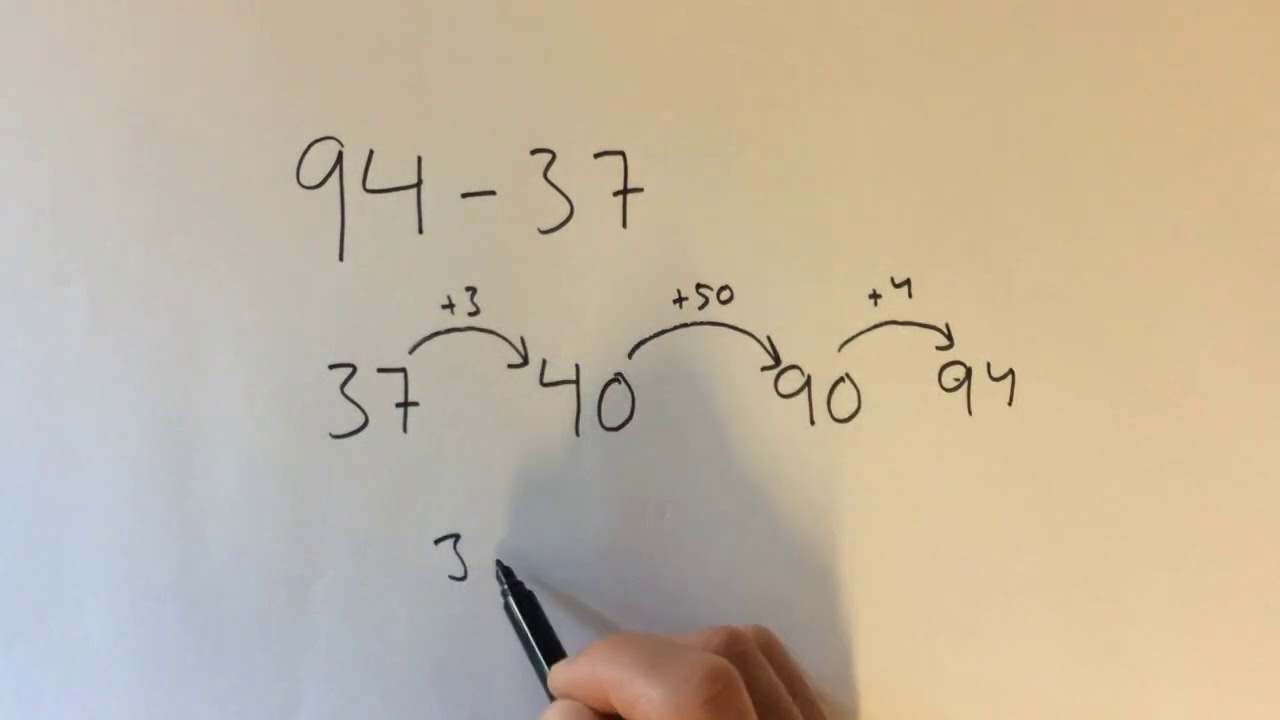 94 - 37
+3 +50 +4
37 40 90 94
3